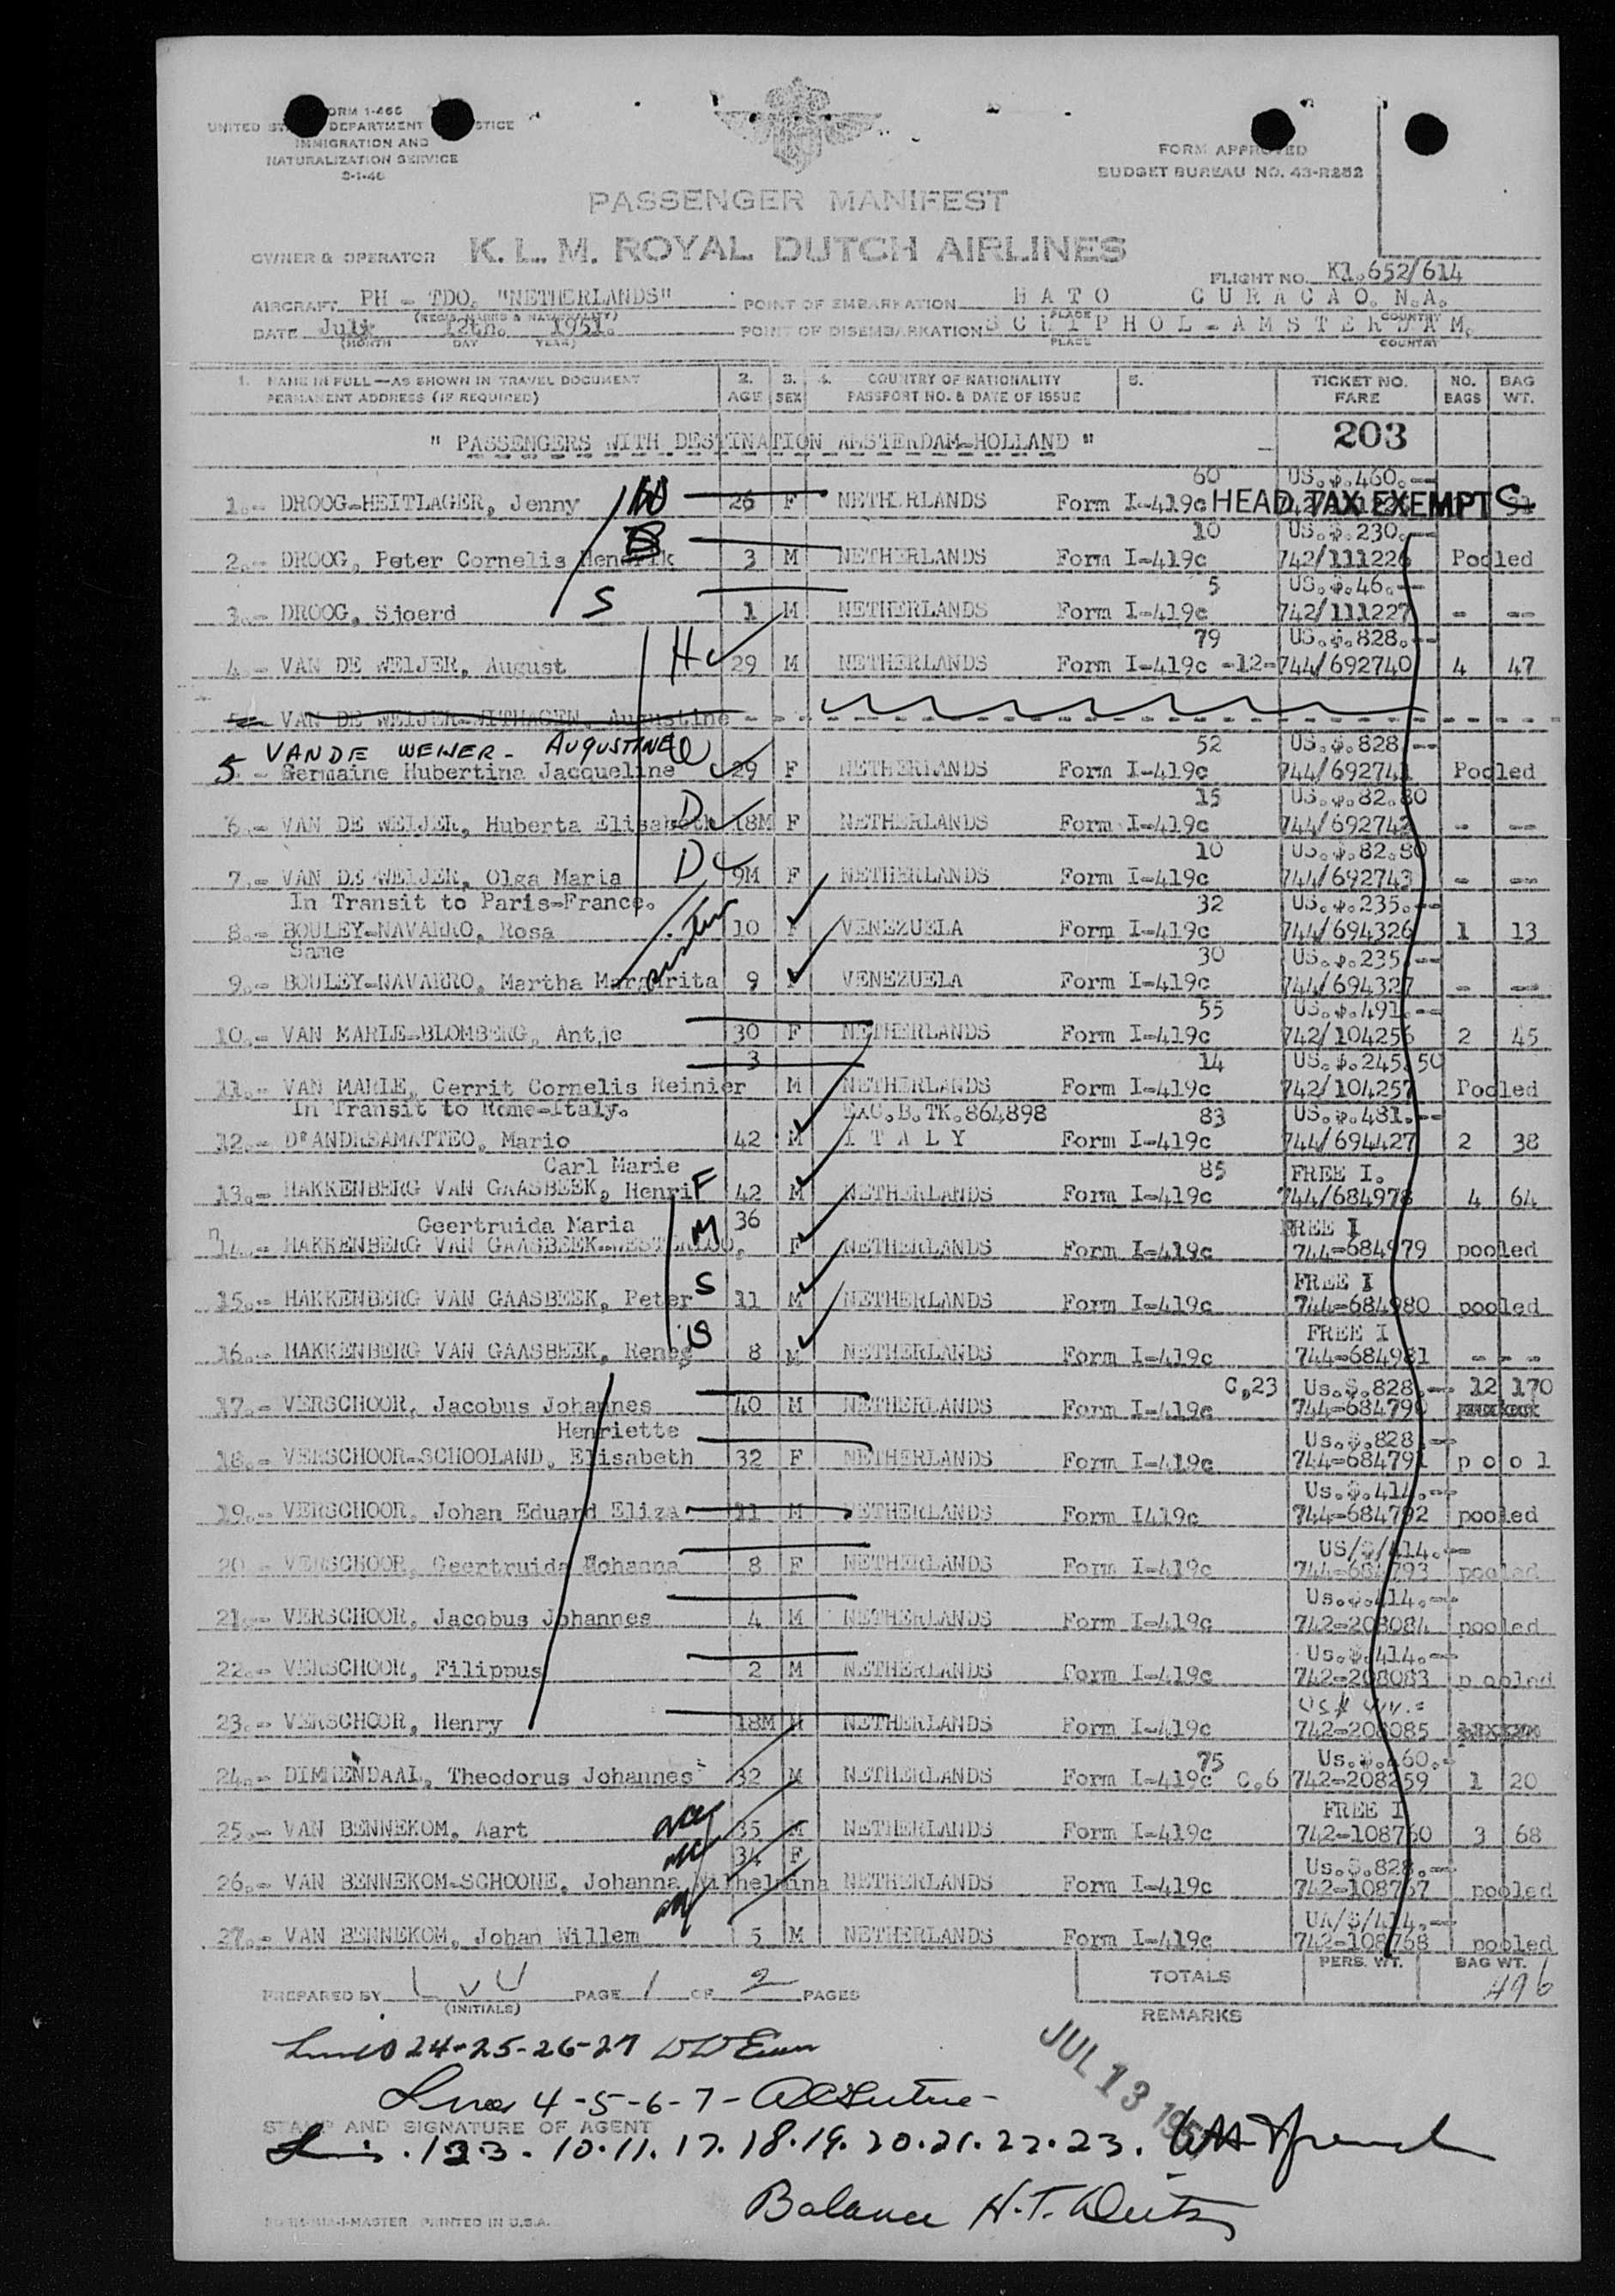 FORM I-466
UNITED ST DEPARTMENT STICE
IMMIGRATION AND
NATURALIZATION SERVICE
FORM APPROVED
BUDGET BUREAU NO. 43-R252
PASSENGER MANIFEST
OWNER & OPERATOR K. L. M. ROYAL DUTCH AIRLINES
FLIGHT NO. Kl.652/614
AIRCRAFT PH - TDO. "NETHERLANDS" POINT OF EMBARKATION H A T O C U R A C A O. N.A.
(REGIS. MARKS & NATIONALITY) PLACE COUNTRY
DATE July 12th. 1951. POINT OF DISEMBARKATION S C H I P H O L - A M S T E R D A M.
(MONTH DAY YEAR) PLACE COUNTRY
1. NAME IN FULL—AS SHOWN IN TRAVEL DOCUMENT 2. 3. 4. COUNTRY OF NATIONALITY 5. TICKET NO. NO. BAG
PERMANENT ADDRESS (IF REQUIRED) AGE SEX PASSPORT NO. & DATE OF ISSUE FARE BAGS WT.
" PASSENGERS WITH DESTINATION AMSTERDAM-HOLLAND " 203
60 US.$.460.--
1.- DROOG-HEITLAGER, Jenny 26 F NETHERLANDS Form I-419c HEAD TAX EXEMPT
10 US.$.230.--
2.- DROOG, Peter Cornelis Hendrik 3 M NETHERLANDS Form I-419c 742/111226 Pooled
5 US.$.46.--
3.- DROOG, Sjoerd S 1 M NETHERLANDS Form I-419c 742/111227 - --
79 US.$.828.--
4.- VAN DE WEIJER, August H 29 M NETHERLANDS Form I-419c -12- 744/692740 4 47
VAN DE WEIJER-WITHAGEN, Augustine
VAN DE WEIJER - AUGUSTINE 52 US.$.828.--
5 - Germaine Hubertina Jacqueline 29 F NETHERLANDS Form I-419c 744/692741 Pooled
15 US.$.82.80
6.- VAN DE WEIJER, Huberta Elisabeth D 18M F NETHERLANDS Form I-419c 744/692742 - --
10 US.$.82.80
7.- VAN DE WEIJER, Olga Maria D 9M F NETHERLANDS Form I-419c 744/692743 - --
In Transit to Paris-France. 32 US.$.235.--
8.- BOULEY-NAVARRO, Rosa 10 F VENEZUELA Form I-419c 744/694326 1 13
Same 30 US.$.235.--
9.- BOULEY-NAVARRO, Martha Margarita 9 F VENEZUELA Form I-419c 744/694327 - --
55 US.$.491.--
10.- VAN MARLE-BLOMBERG, Antje 30 F NETHERLANDS Form I-419c 742/104256 2 45
3 14 US.$.245.50
11.- VAN MARLE, Gerrit Cornelis Reinier M NETHERLANDS Form I-419c 742/104257 Pooled
In Transit to Rome-Italy. EXC.B.TK.864898 83 US.$.481.--
12.- D'ANDREAMATTEO, Mario 42 M I T A L Y Form I-419c 744/694427 2 38
Carl Marie 85 FREE I.
13.- HAKKENBERG VAN GAASBEEK, Henri F 42 M NETHERLANDS Form I-419c 744/684978 4 64
Geertruida Maria M 36 FREE I
14.- HAKKENBERG VAN GAASBEEK-WESTERLOO, F NETHERLANDS Form I-419c 744-684979 pooled
FREE I
15.- HAKKENBERG VAN GAASBEEK, Peter S 11 M NETHERLANDS Form I-419c 744-684980 pooled
FREE I
16.- HAKKENBERG VAN GAASBEEK, Reneg S 8 M NETHERLANDS Form I-419c 744-684981 - - -
C,23 Us.$.828.-- 12 170
17.- VERSCHOOR, Jacobus Johannes 40 M NETHERLANDS Form I-419c 744-684790
Henriette Us.$.828.--
18.- VERSCHOOR-SCHOOLAND, Elisabeth 32 F NETHERLANDS Form I-419c 744-684791 p o o l
Us.$.414.--
19.- VERSCHOOR, Johan Eduard Eliza 11 M NETHERLANDS Form I419c 744-684792 pooled
US/$/414.--
20.- VERSCHOOR, Geertruida Johanna 8 F NETHERLANDS Form I-419c 744-684793 pooled
Us.$.414.--
21.- VERSCHOOR, Jacobus Johannes 4 M NETHERLANDS Form I-419c 742-208084 pooled
Us.$.414.--
22.- VERSCHOOR, Filippus 2 M NETHERLANDS Form I-419c 742-208083 pooled
23.- VERSCHOOR, Henry 18M M NETHERLANDS Form I-419c 742-208085
75 Us.$.460.-
24.- DIMMENDAAL, Theodorus Johannes 32 M NETHERLANDS Form I-419c C,6 742-208259 1 20
FREE I
25.- VAN BENNEKOM, Aart 35 M NETHERLANDS Form I-419c 742-108760 3 68
34 F Us.$.828.--
26.- VAN BENNEKOM-SCHOONE, Johanna Wilhelmina NETHERLANDS Form I-419c 742-108767 pooled
UA/$/414.--
27.- VAN BENNEKOM, Johan Willem 5 M NETHERLANDS Form I-419c 742-108768 pooled
TOTALS PERS. WT. BAG WT.
496
PREPARED BY LvU PAGE 1 OF 2 PAGES
(INITIALS)
REMARKS
Lines 24-25-26-27
JUL 13 195
Lines 4-5-6-7-
STAMP AND SIGNATURE OF AGENT
123. 10.11. 17. 18.19. 20.21. 22.23.
Balance H.T.
MASTER PRINTED IN U.S.A.